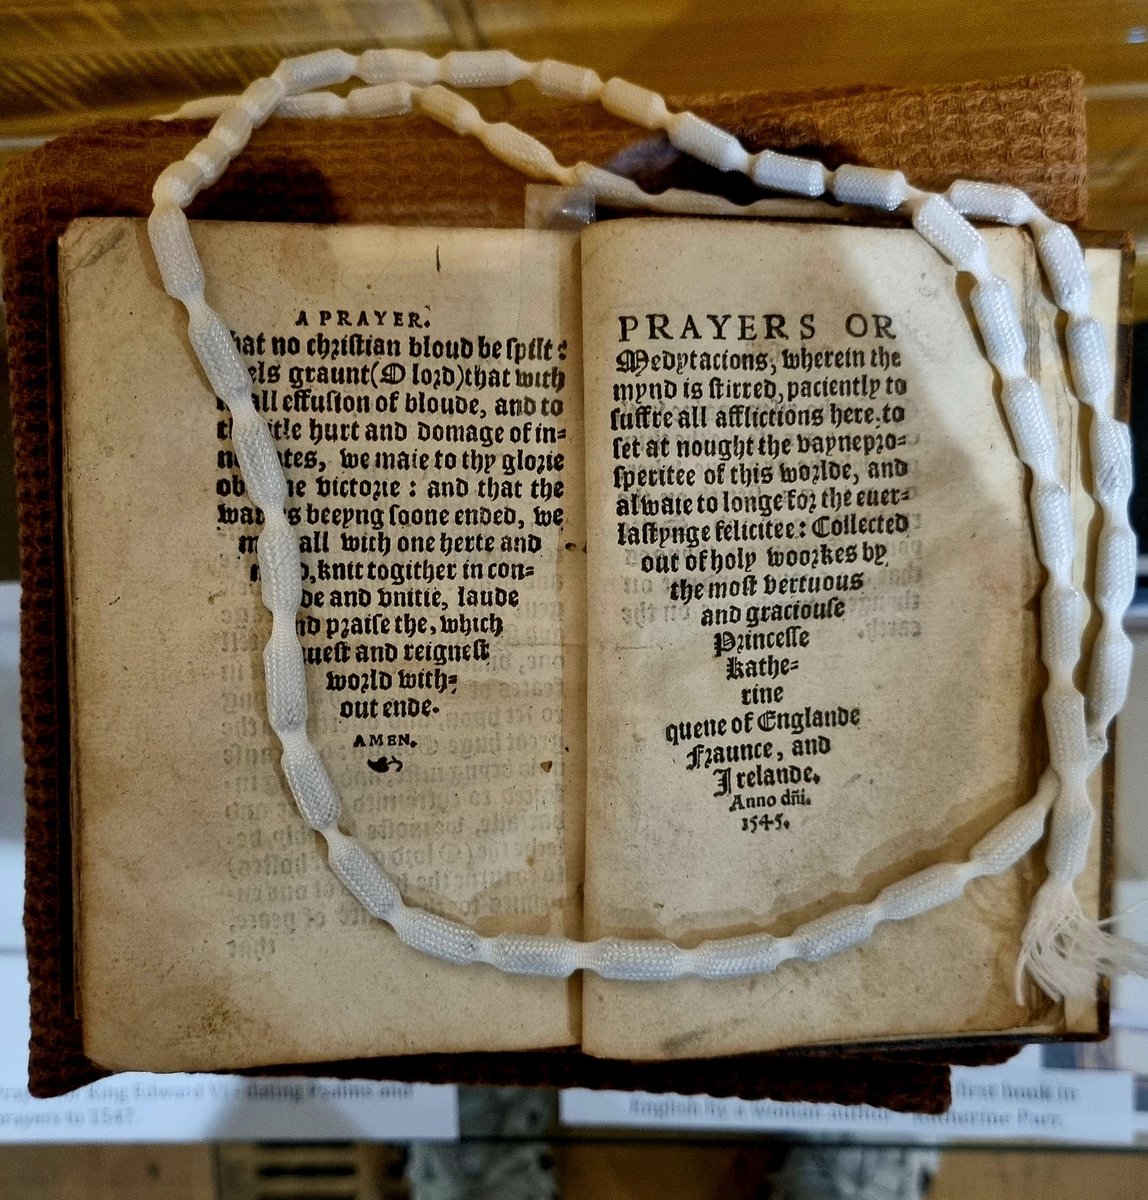 A PRAYER.
no chꝛiſtian bloud be ſpilt :
graunt(O loꝛd)that with
all effuſion of bloude, and to
hurt and domage of in=
we maie to thy gloꝛie
victoꝛie : and that the
beeyng ſoone ended, we
all with one herte and
knit togither in con=
and vnitie, laude
pꝛaiſe the, which
and reigneſt
woꝛld with=
out ende.
AMEN.
PRAYERS OR
Medytacions, wherein the
mynd is ſtirred, paciently to
ſuffre all afflictions here, to
ſet at nought the vaynepꝛo=
ſperitee of this woꝛlde, and
alwaie to longe foꝛ the euer=
laſtynge felicitee: Collected
out of holy wooꝛkes by
the moſt vertuous
and graciouſe
Pꝛinceſſe
Kathe=
rine
quene of Englande
Fꝛaunce, and
Irelande.
Anno dñi.
1545.
King Edward VI dating Psalms and
prayers to 1547
first book in
English by a woman author Katharine Parr.